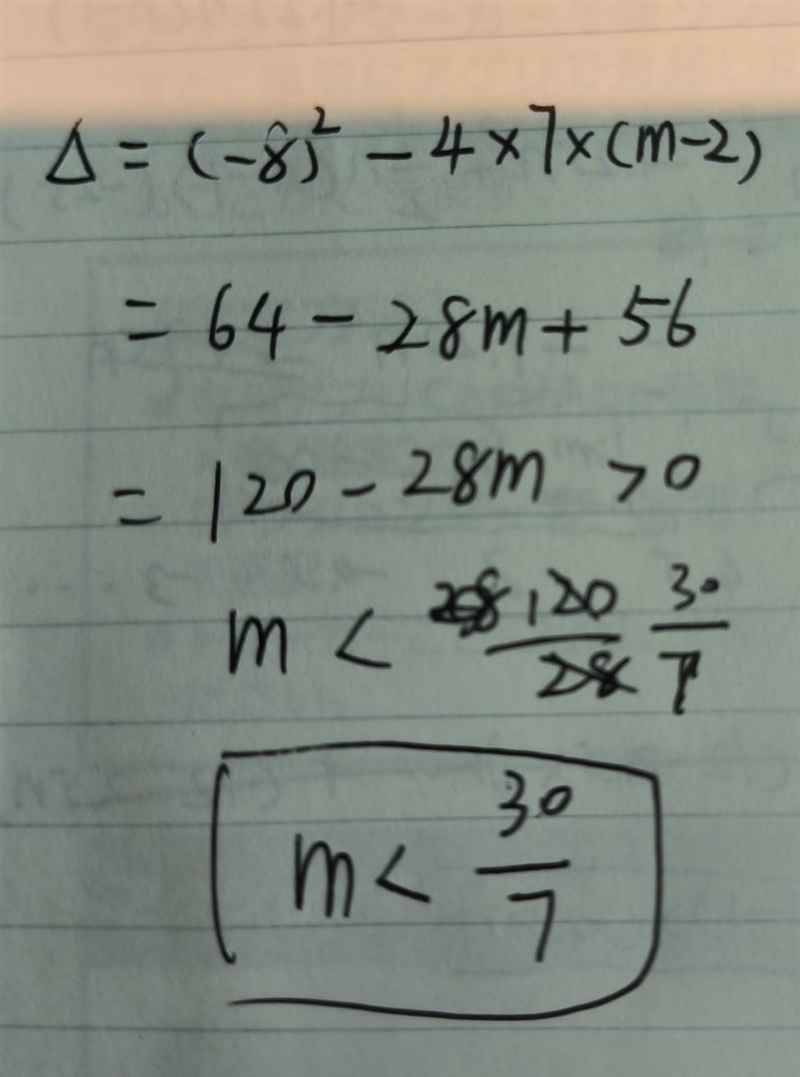 Δ = (-8)² - 4×7×(m-2)
= 64 - 28m + 56
= 120 - 28m > 0
m < 120/28 30/7
m < 30/7